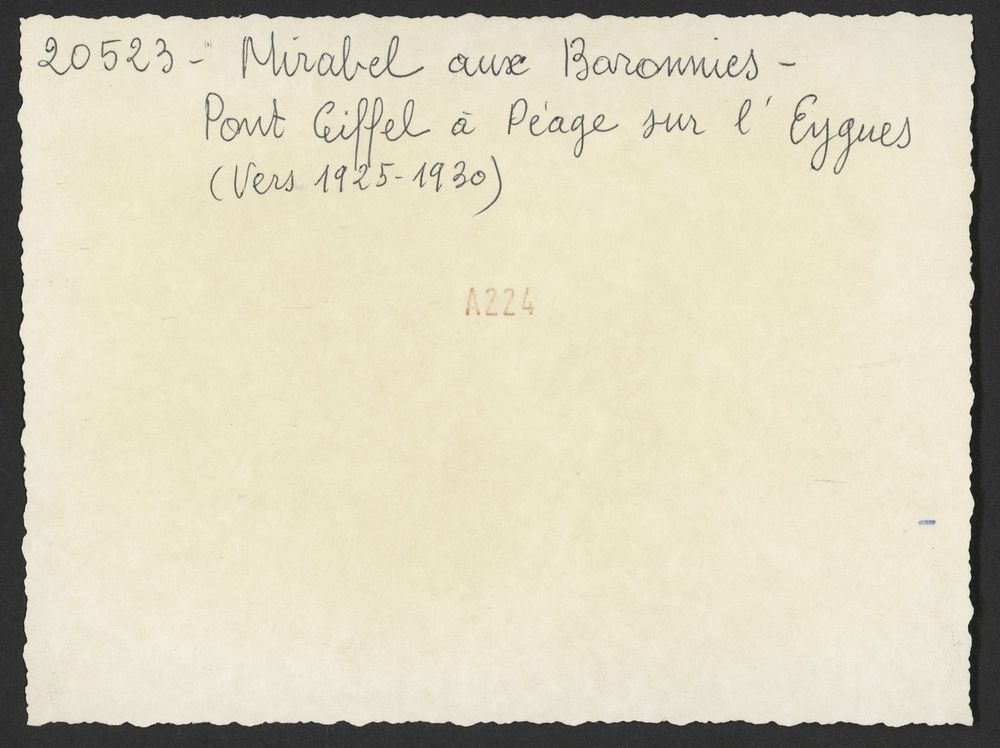 20523 - Mirabel aux Baronnies -
Pont Eiffel à Péage sur l' Eygues
(Vers 1925-1930)
A224